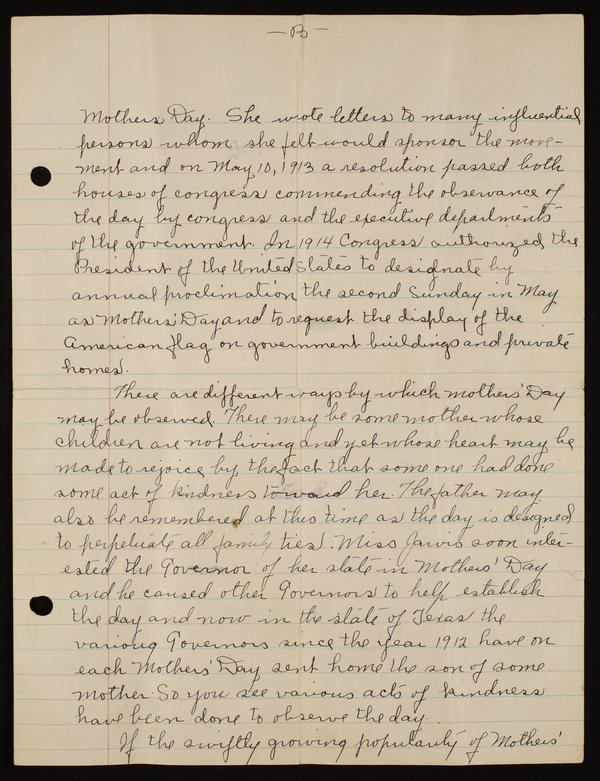 - B -
Mothers Day. She wrote letters to many influential
persons whom she felt would sponsor the move-
ment and on May 10, 1913 a resolution passed both
houses of congress commending the observance of
the day by congress and the executive departments
of the government. In 1914 Congress authorized the
President of the United States to designate by
annual proclimation the second Sunday in May
as Mothers' Day and to request the display of the
American flag on government buildings and private
homes.
There are different ways by which mothers' Day
may be observed. There may be some mother whose
children are not living and yet whose heart may be
made to rejoice by the fact that some one had done
some act of kindness toward her. The father may
also be remembered at this time as the day is designed
to perpetuate all family ties. Miss Jarvis soon inter-
ested the Governor of her state in Mothers' Day
and he caused other Governors to help establish
the day and now in the state of Texas the
various Governors since the year 1912 have on
each Mothers' Day sent home the son of some
mother. So you see various acts of kindness
have been done to observe the day.
If the swiftly growing popularity of Mothers'